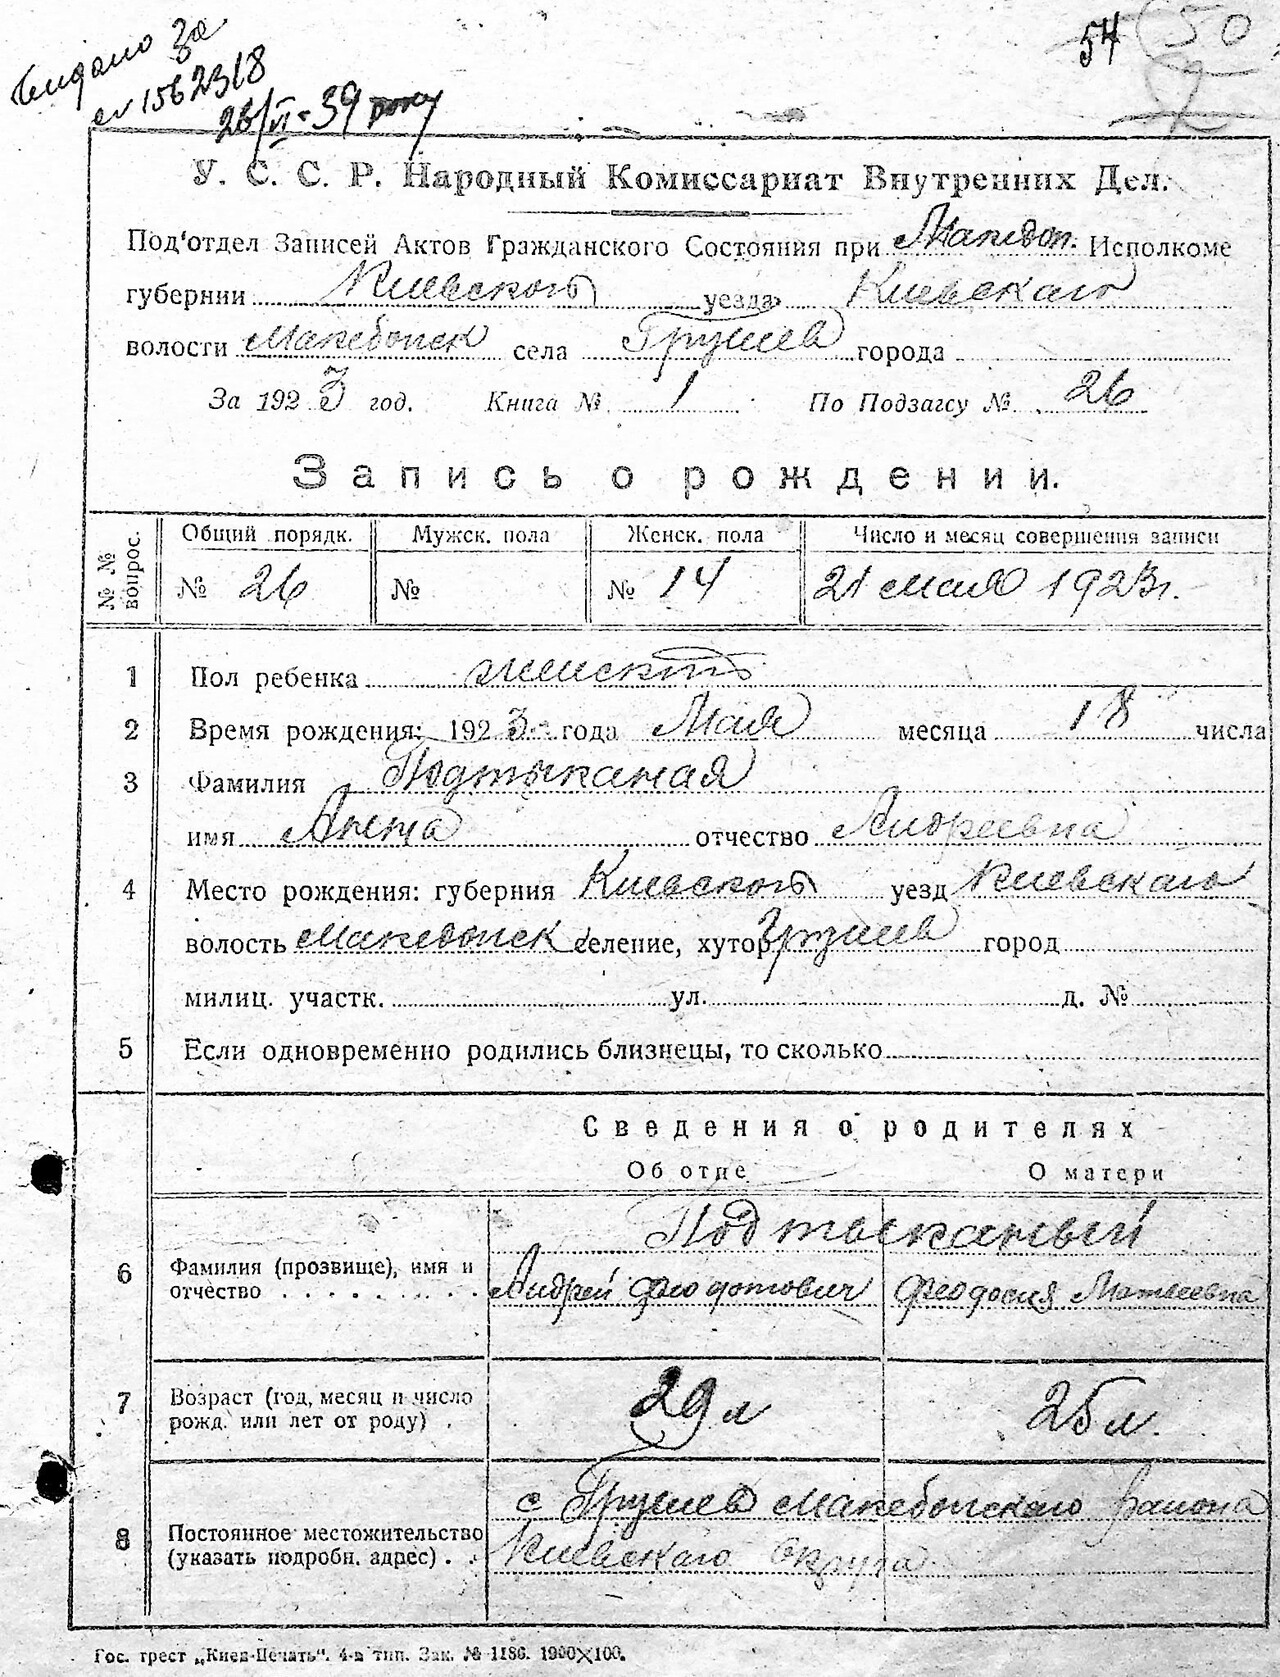 Видано За
1562318
26/VI-39 року
54 50
У. С. С. Р. Народный Комиссариат Внутренних Дел.
Под'отдел Записей Актов Гражданского Состояния при Македон. Исполкоме
губернии Киевской уезда Киевскаго
волости Македонск села Грушев города
За 1923 год. Книга № 1 По Подзагсу № 26
Запись о рождении.
№ № вопрос. Общий порядк. Мужск. пола Женск. пола Число и месяц совершения записи
№ 26 № № 14 21 мая 1923 г.
1 Пол ребенка женский
2 Время рождения: 1923 года Мая месяца 18 числа
3 Фамилия Подтыканая
имя Анна отчество Андреевна
4 Место рождения: губерния Киевской уезд Киевскаго
волость Македонск селение, хутор Грушев город
милиц. участк. ул. д. №
5 Если одновременно родились близнецы, то сколько
Сведения о родителях
Об отце О матери
Подтыканый
6 Фамилия (прозвище), имя и
отчество Андрей Феодотович Феодосия Матвеевна
7 Возраст (год, месяц и число
рожд. или лет от роду) . 29 л 25 л.
с Грушев Македонскаго района
8 Постоянное местожительство
(указать подробн. адрес) . . Киевскаго Округа
Гос. трест „Киев-Печать". 4-я тип. Зак. № 1186. 1900×100.